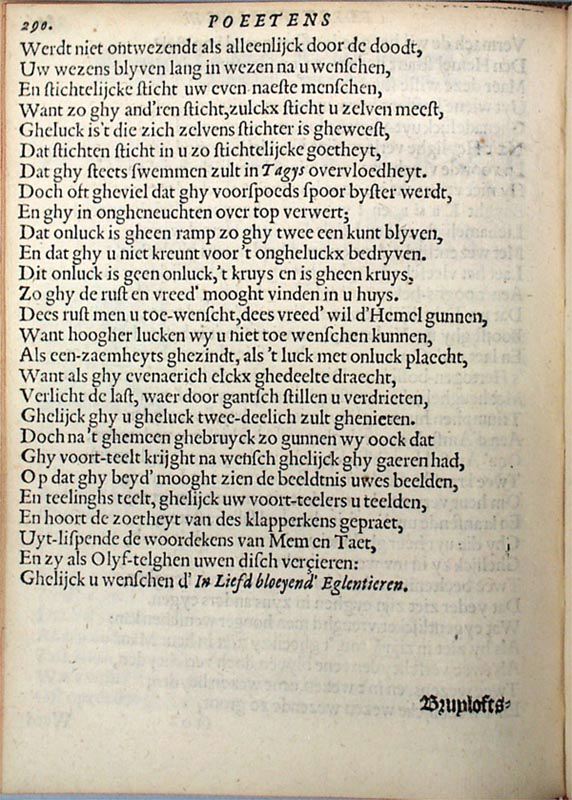 290. POEETENS
Werdt niet ontwezendt als alleenlijck door de doodt,
Uw wezens blyven lang in wezen na u wenschen,
En stichtelijcke sticht uw even naeste menschen,
Want zo ghy and'ren sticht, zulckx sticht u zelven meest,
Gheluck is't die zich zelvens stichter is gheweest,
Dat stichten sticht in u zo stichtelijcke goetheyt,
Dat ghy steets swemmen zult in Tagys overvloedheyt.
Doch oft gheviel dat ghy voorspoeds spoor byster werdt,
En ghy in ongheneuchten over top verwert;
Dat onluck is gheen ramp zo ghy twee een kunt blyven,
En dat ghy u niet kreunt voor 't ongheluckx bedryven.
Dit onluck is geen onluck, 't kruys en is gheen kruys,
Zo ghy de rust en vreed' mooght vinden in u huys.
Dees rust men u toe-wenscht, dees vreed' wil d'Hemel gunnen,
Want hoogher lucken wy u niet toe wenschen kunnen,
Als een-zaemheyts ghezindt, als 't luck met onluck plaecht,
Want als ghy evenaerich elckx ghedeelte draecht,
Verlicht de last, waer door gantsch stillen u verdrieten,
Ghelijck ghy u gheluck twee-deelich zult ghenieten.
Doch na 't ghemeen ghebruyck zo gunnen wy oock dat
Ghy voort-teelt krijght na wensch ghelijck ghy gaeren had,
Op dat ghy beyd' mooght zien de beeldtnis uwes beelden,
En teelinghs teelt, ghelijck uw voort-teelers u teelden,
En hoort de zoetheyt van des klapperkens gepraet,
Uyt-lispende de woordekens van Mem en Taet,
En zy als Olyf-telghen uwen disch verçieren:
Ghelijck u wenschen d' In Liefd bloeyend' Eglentieren.
Bruylofts-